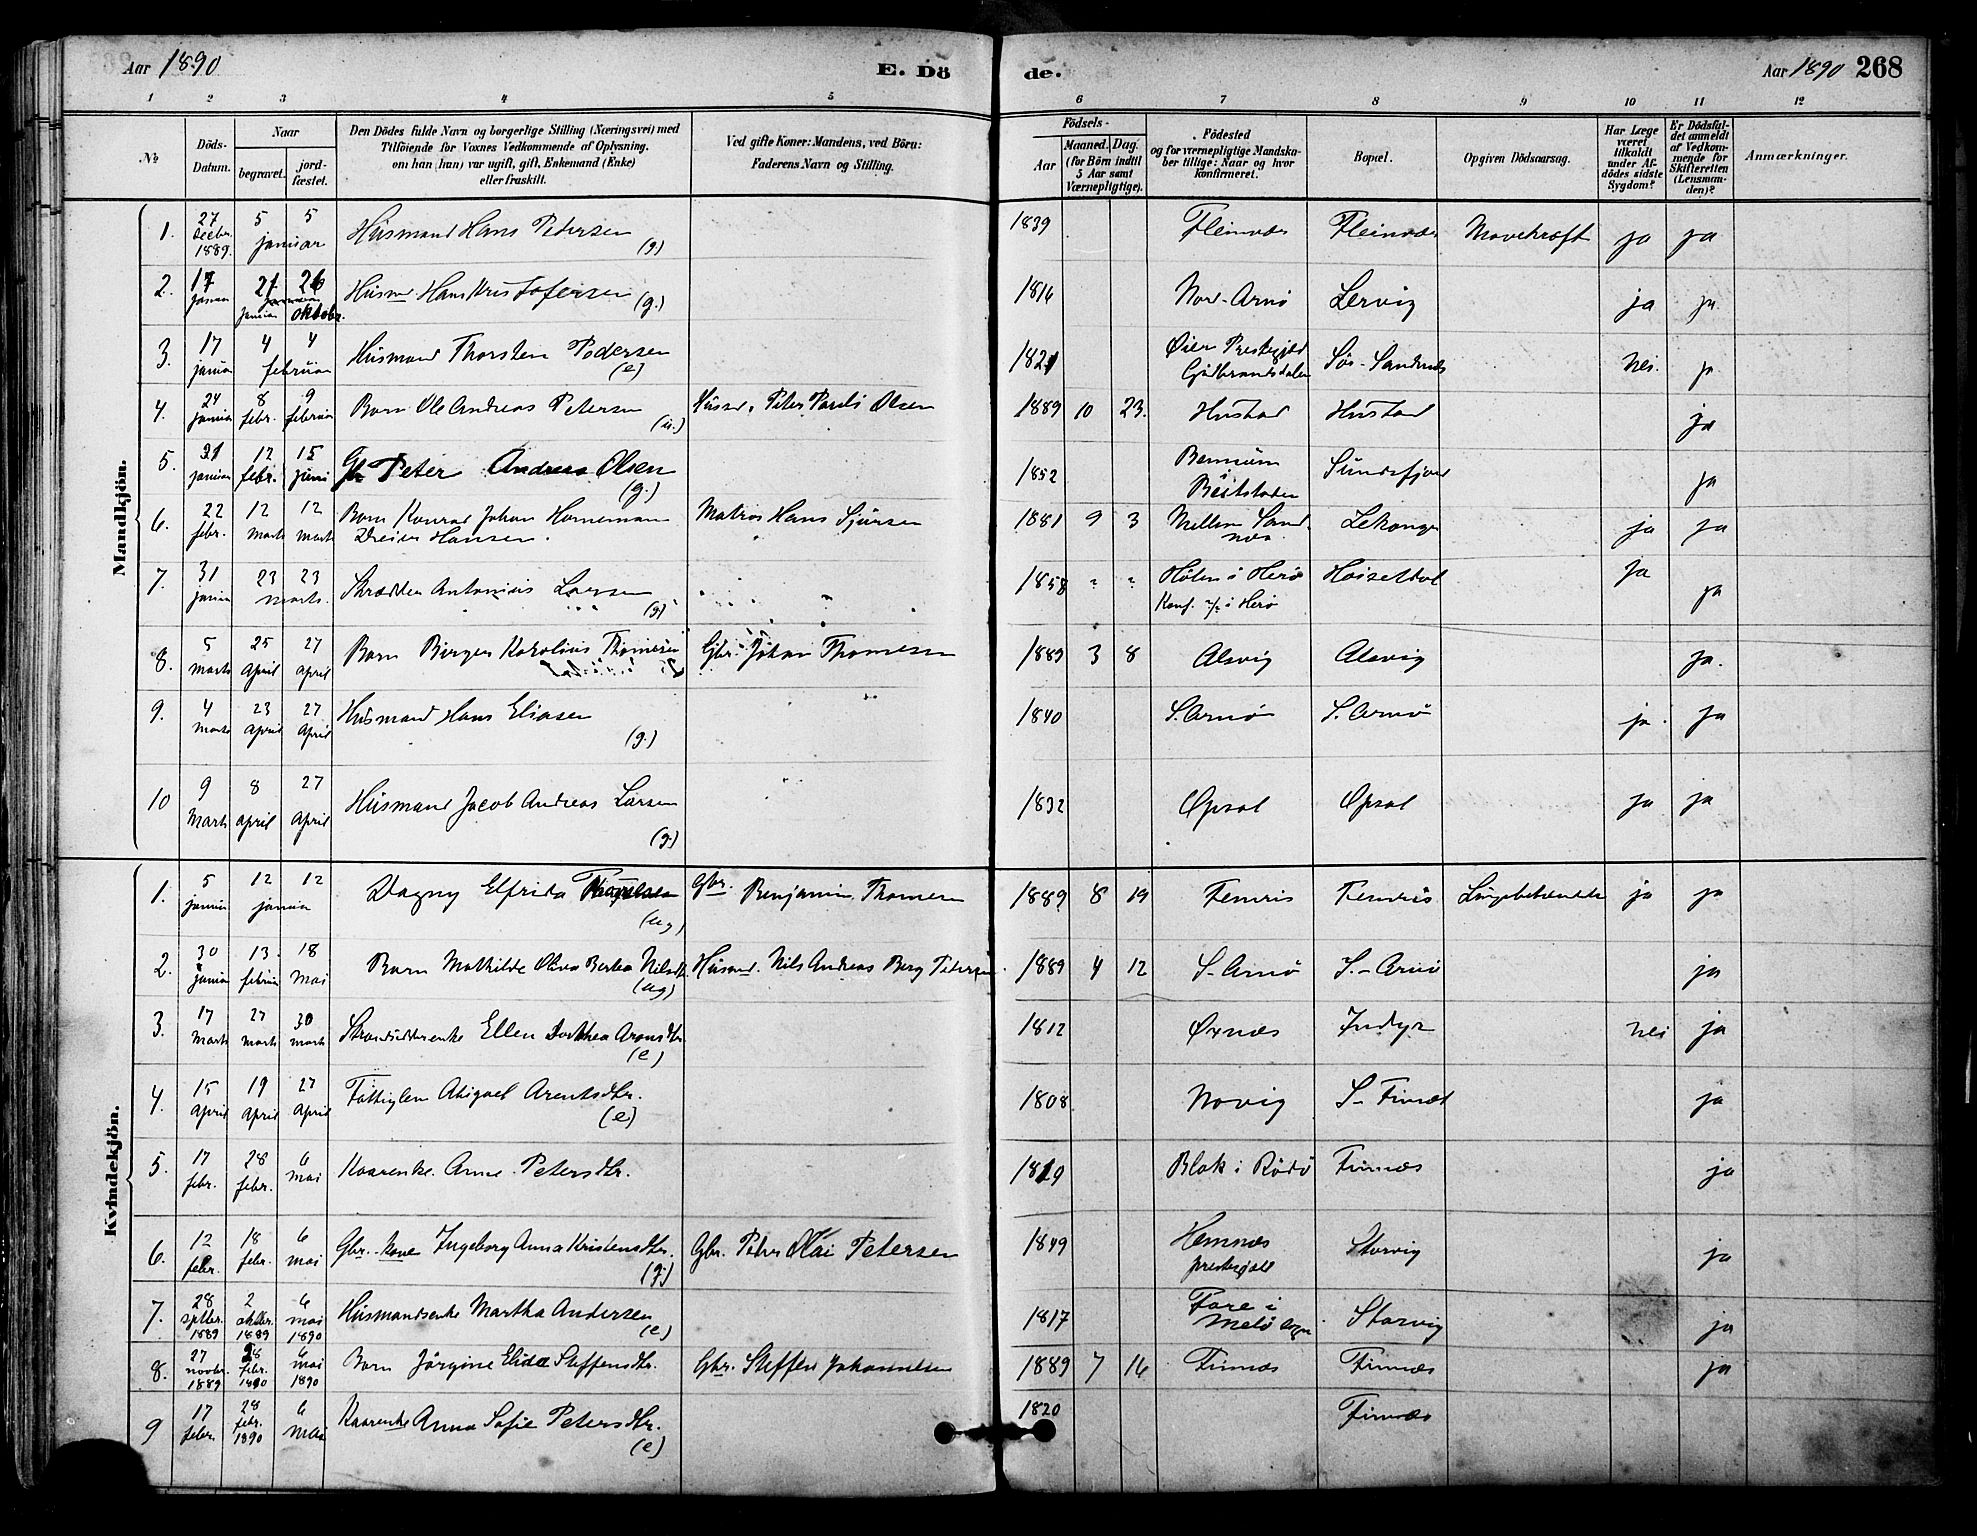 Aar 1890
E. Dö
de.
Aar 1890 268
1 2 3 4 5 6 7 8 9 10 11 12
№
Döds-
Datum.
Naar
begravet.
jord-
fæstet.
Den Dödes fulde Navn og borgerlige Stilling (Næringsvei) med
Tilföiende for Voxnes Vedkommende af Oplysning,
om han (hun) var ugift, gift, Enkemand (Enke)
eller fraskilt.
Ved gifte Koner: Mandens, ved Börn:
Faderens Navn og Stilling.
Födsels-
Aar
Maaned. Dag.
(for Börn indtil
5 Aar samt
Værnepligtige).
Födested
og for værnepligtige Mandska-
ber tillige: Naar og hvor
konfirmeret.
Bopæl.
Opgiven Dödsaarsag.
Har Læge
været
tilkaldt
under Af-
dödes sidste
Sygdom?
Er Dödsfal-
det anmeldt
af Vedkom-
mende for
Skifteretten
(Lensman-
den)?
Anmærkninger.
Mandkjön.
1. 27 Decbr. 1889. 5 5 januar Husmand Hans Petersen (g) 1839 Fleinvær Fleinvær Mavekræft ja ja
2. 17 januar 21 januar 26 oktobr. Husmd Hans Kristofersen (g.) 1816 Nord-Arnø Lervig ja ja.
3. 17 januar 4 4 februar Husmand Thorsten Pedersen (e) 1821 Øier Prestegjeld Gudbrandsdalen Sör-Sandnæs nei. ja
4. 24 januar 8 febr. 9 februar Barn Ole Andreas Petersen (u.) Husmd. Peter Pauli Olsen 1889 10 23. Hustad Hustad ja
5. 21 januar 12 febr. 15 juni Gbr Peter Andreas Olsen (g.) 1852 Beitstaden Sundsfjord ja
6. 22 febr. 12 marts 12 marts Barn Konrad Johan Hornemann Dreier Hansen. Matros Hans Sjursen 1881 9 3 Mellem Sand- Lekanger ja ja
7. 31 januar 23 23 marts. Skrædder Antonius Larsen (g) 1858 " " Holen i Herø Konf. i Herø Høisetdal ja ja
8. 5 marts 25 april 27 april Barn Birger Karolius Thomesen Gbr. Johan Thomesen 1889 3 8 Alsvig Alsvig ja.
9. 4 marts 23 april 27 april Husmand Hans Eliasen (g.) 1840 S. Arnø S. Arnø ja. ja
10 9 Marts 8 april 27 april Husmand Jacob Andreas Larsen (g.) 1832 Opsal Opsal ja ja
Kvindekjön.
1. 5 januar 12 12 januar Dagny Elfrida Thomesen (ug) Gbr. Benjamin Thomesen 1889 8 19 Femris Femris Lungebetændelse ja ja
2. 30 januar 13 februar 18 mai Barn Mathilde Oliva Bertea Nilsdtr. (ug) Husmd. Nils Andreas Berg Petersen. 1889 4 12 S-Arnø S.-Arnø ja
3. 17 marts 27 marts 30 marts Strandsidderenke Ellen Dorthea Aronsdtr. (e) 1812 Øxnæs Indyr nei ja
4. 15 april 19 april 27 april Fattiglem Abigael Arentsdtr. (e) 1808 Novig S-Finnæs ja
5. 17 febr. 28 febr. 6 mai Kaarenke. Anne Petersdtr. 1819 Blok i Rödö Finnæs ja
6. 12 febr. 18 febr. 6 mai Gbr.-kone Ingeborg Anna Kristensdtr. (g.) Gbr. Peter Kai Petersen 1849 Hemnæs prestegjeld Storvig ja
7. 28 septbr. 1889 2 oktbr. 1889 6 mai 1890 Husmandsenke Martha Andersen (e) 1817 Fore i Melö sogn Storvig ja
8. 27 novbr. 1889 28 febr. 1890 6 mai 1890 Barn Jörgine Elida Steffensdtr. Gbr. Steffen Johannesen 1889 7 16 Finnæs Finnæs ja
9 17 febr. 28 febr. 1890 6 mai Kaarenke Anna Sofie Petersdtr. (e) 1820 Finnæs